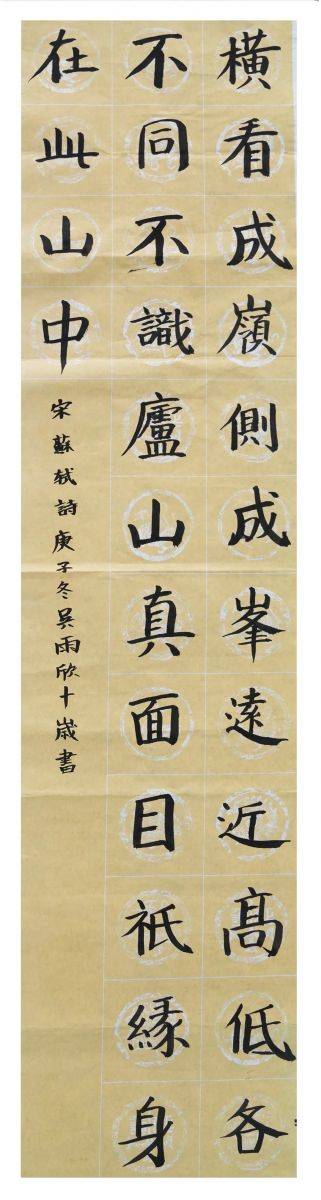 橫看成嶺側成峯遠近髙低各
不同不識廬山真面目祇緣身
在此山中
宋蘇轼詩庚子冬吴雨欣十嵗書